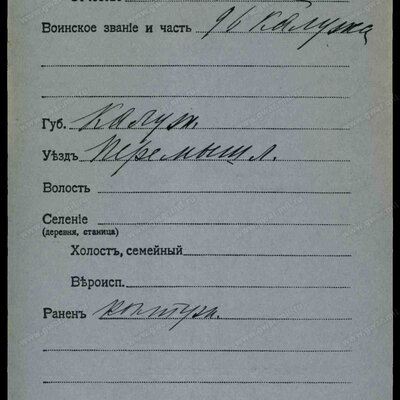 Воинское званіе и часть 96 Калужск
Губ. Калуж.
Уѣздъ Перемышл.
Волость
Селеніе
(деревня, станица)
Холостъ, семейный
Вѣроисп.
Раненъ контуж.